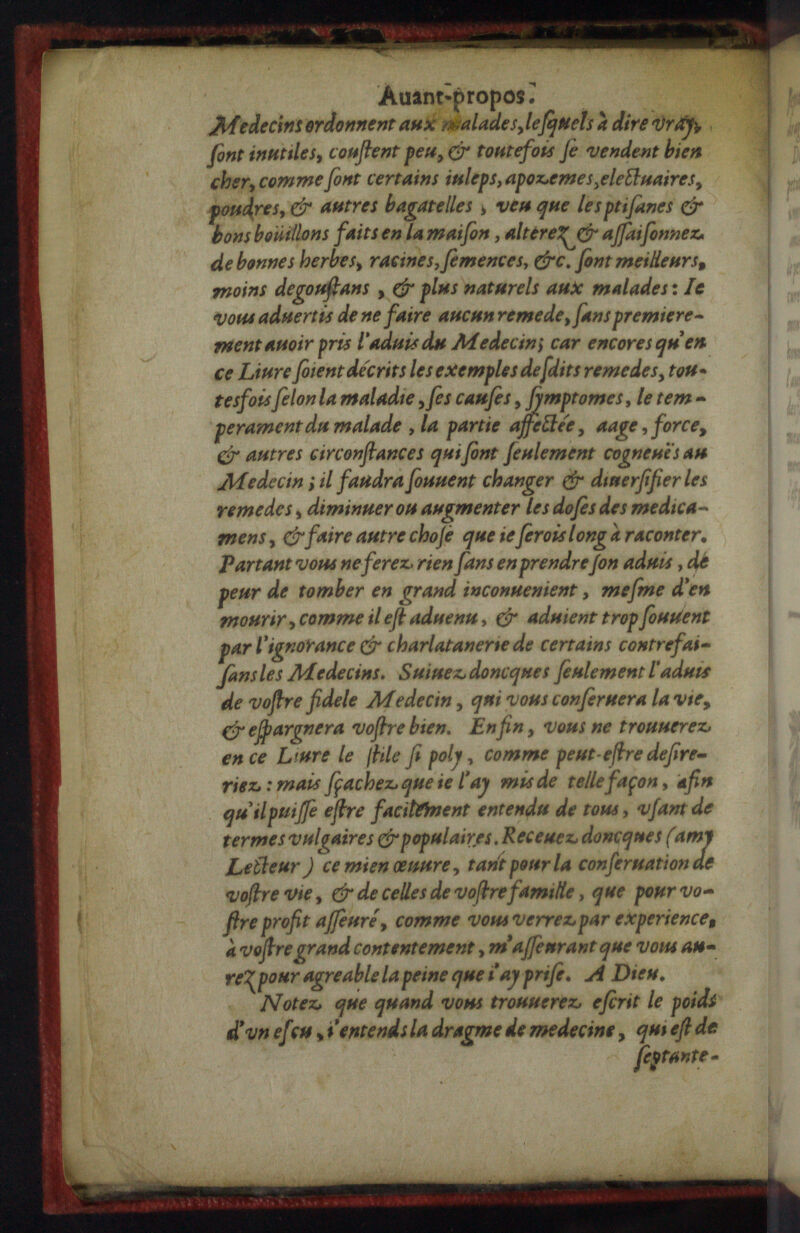 Auant-propos.
Medecins ordonnent aux malades, lesquels à dire vray,
ſont inutiles, couſtent peu, & toutefois ſe vendent bien
cher, comme ſont certains iuleps, apozemes, electuaires,
poudres, & autres bagatelles, veu que les ptiſanes &
bons boüillons faits en la maiſon, alterez & aſſaiſonnez
de bonnes herbes, racines, ſemences, &c. ſont meilleurs,
moins degouſtans, & plus naturels aux malades: Ie
vous aduertis de ne faire aucun remede, ſans premiere-
ment auoir pris l'aduis du Medecin; car encores qu'en
ce Liure ſoient décrits les exemples deſdits remedes, tou-
tesfois ſelon la maladie, ſes cauſes, ſymptomes, le tem-
perament du malade, la partie affectée, aage, force,
& autres circonſtances qui ſont ſeulement cogneuës au
Medecin; il faudra ſouuent changer & diuerſifier les
remedes, diminuer ou augmenter les doſes des medica-
mens, & faire autre choſe que ie ſerois long à raconter.
Partant vous ne ferez rien ſans en prendre ſon aduis, de
peur de tomber en grand inconuenient, meſme d'en
mourir, comme il eſt aduenu, & aduient trop ſouuent
par l'ignorance & charlatanerie de certains contrefai-
ſans les Medecins. Suiuez doncques ſeulement l'aduis
de voſtre fidele Medecin, qui vous conſeruera la vie,
& eſpargnera voſtre bien. Enfin, vous ne trouuerez
en ce Liure le ſtile ſi poly, comme peut-eſtre deſire-
riez: mais ſçachez que ie l'ay mis de telle façon, afin
qu'il puiſſe eſtre facilement entendu de tous, vſant de
termes vulgaires & populaires. Receuez doncques (amy
Lecteur) ce mien œuure, tant pour la conſeruation de
voſtre vie, & de celles de voſtre famille, que pour vo-
ſtre profit aſſeuré, comme vous verrez par experience,
à voſtre grand contentement, m'aſſeurant que vous au-
rez pour agreable la peine que i'ay priſe. A Dieu.
Notez que quand vous trouuerez eſcrit le poids
d'vn eſcu, i'entends la dragme de medecine, qui eſt de
ſeptante-